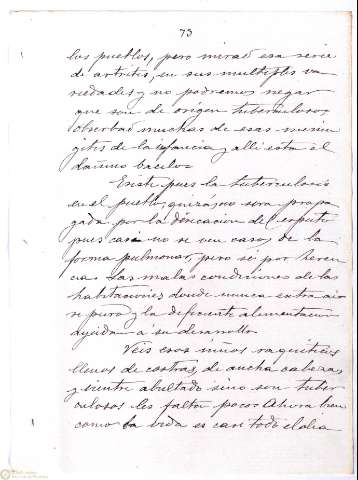 73
los pueblos, pero mirad esa serie
de artritis, en sus multiples va
riedades y no podremos negar
que son de origen tuberculoso,
obserbad muchas de esas menin
gitis de la infancia y alli esta el
dañino bacilo.
Existe pues la tuberculosis
en el pueblo, quizá no sera propa
gada por la desicacion del esputo
pues casi no se ven casos de la
forma pulmonar, pero si por heren
cia. Las malas condiciones de las
habitaciones donde nunca entra ai
re puro y la deficiente alimentacion
ayudan a su desarrollo.
Veis esos niños raquiticos
llenos de costras, de ancha cabeza,
y vientre abultado sino son tuber
culosos les falta poco. Ahora bien
como la vida es casi todo el dia